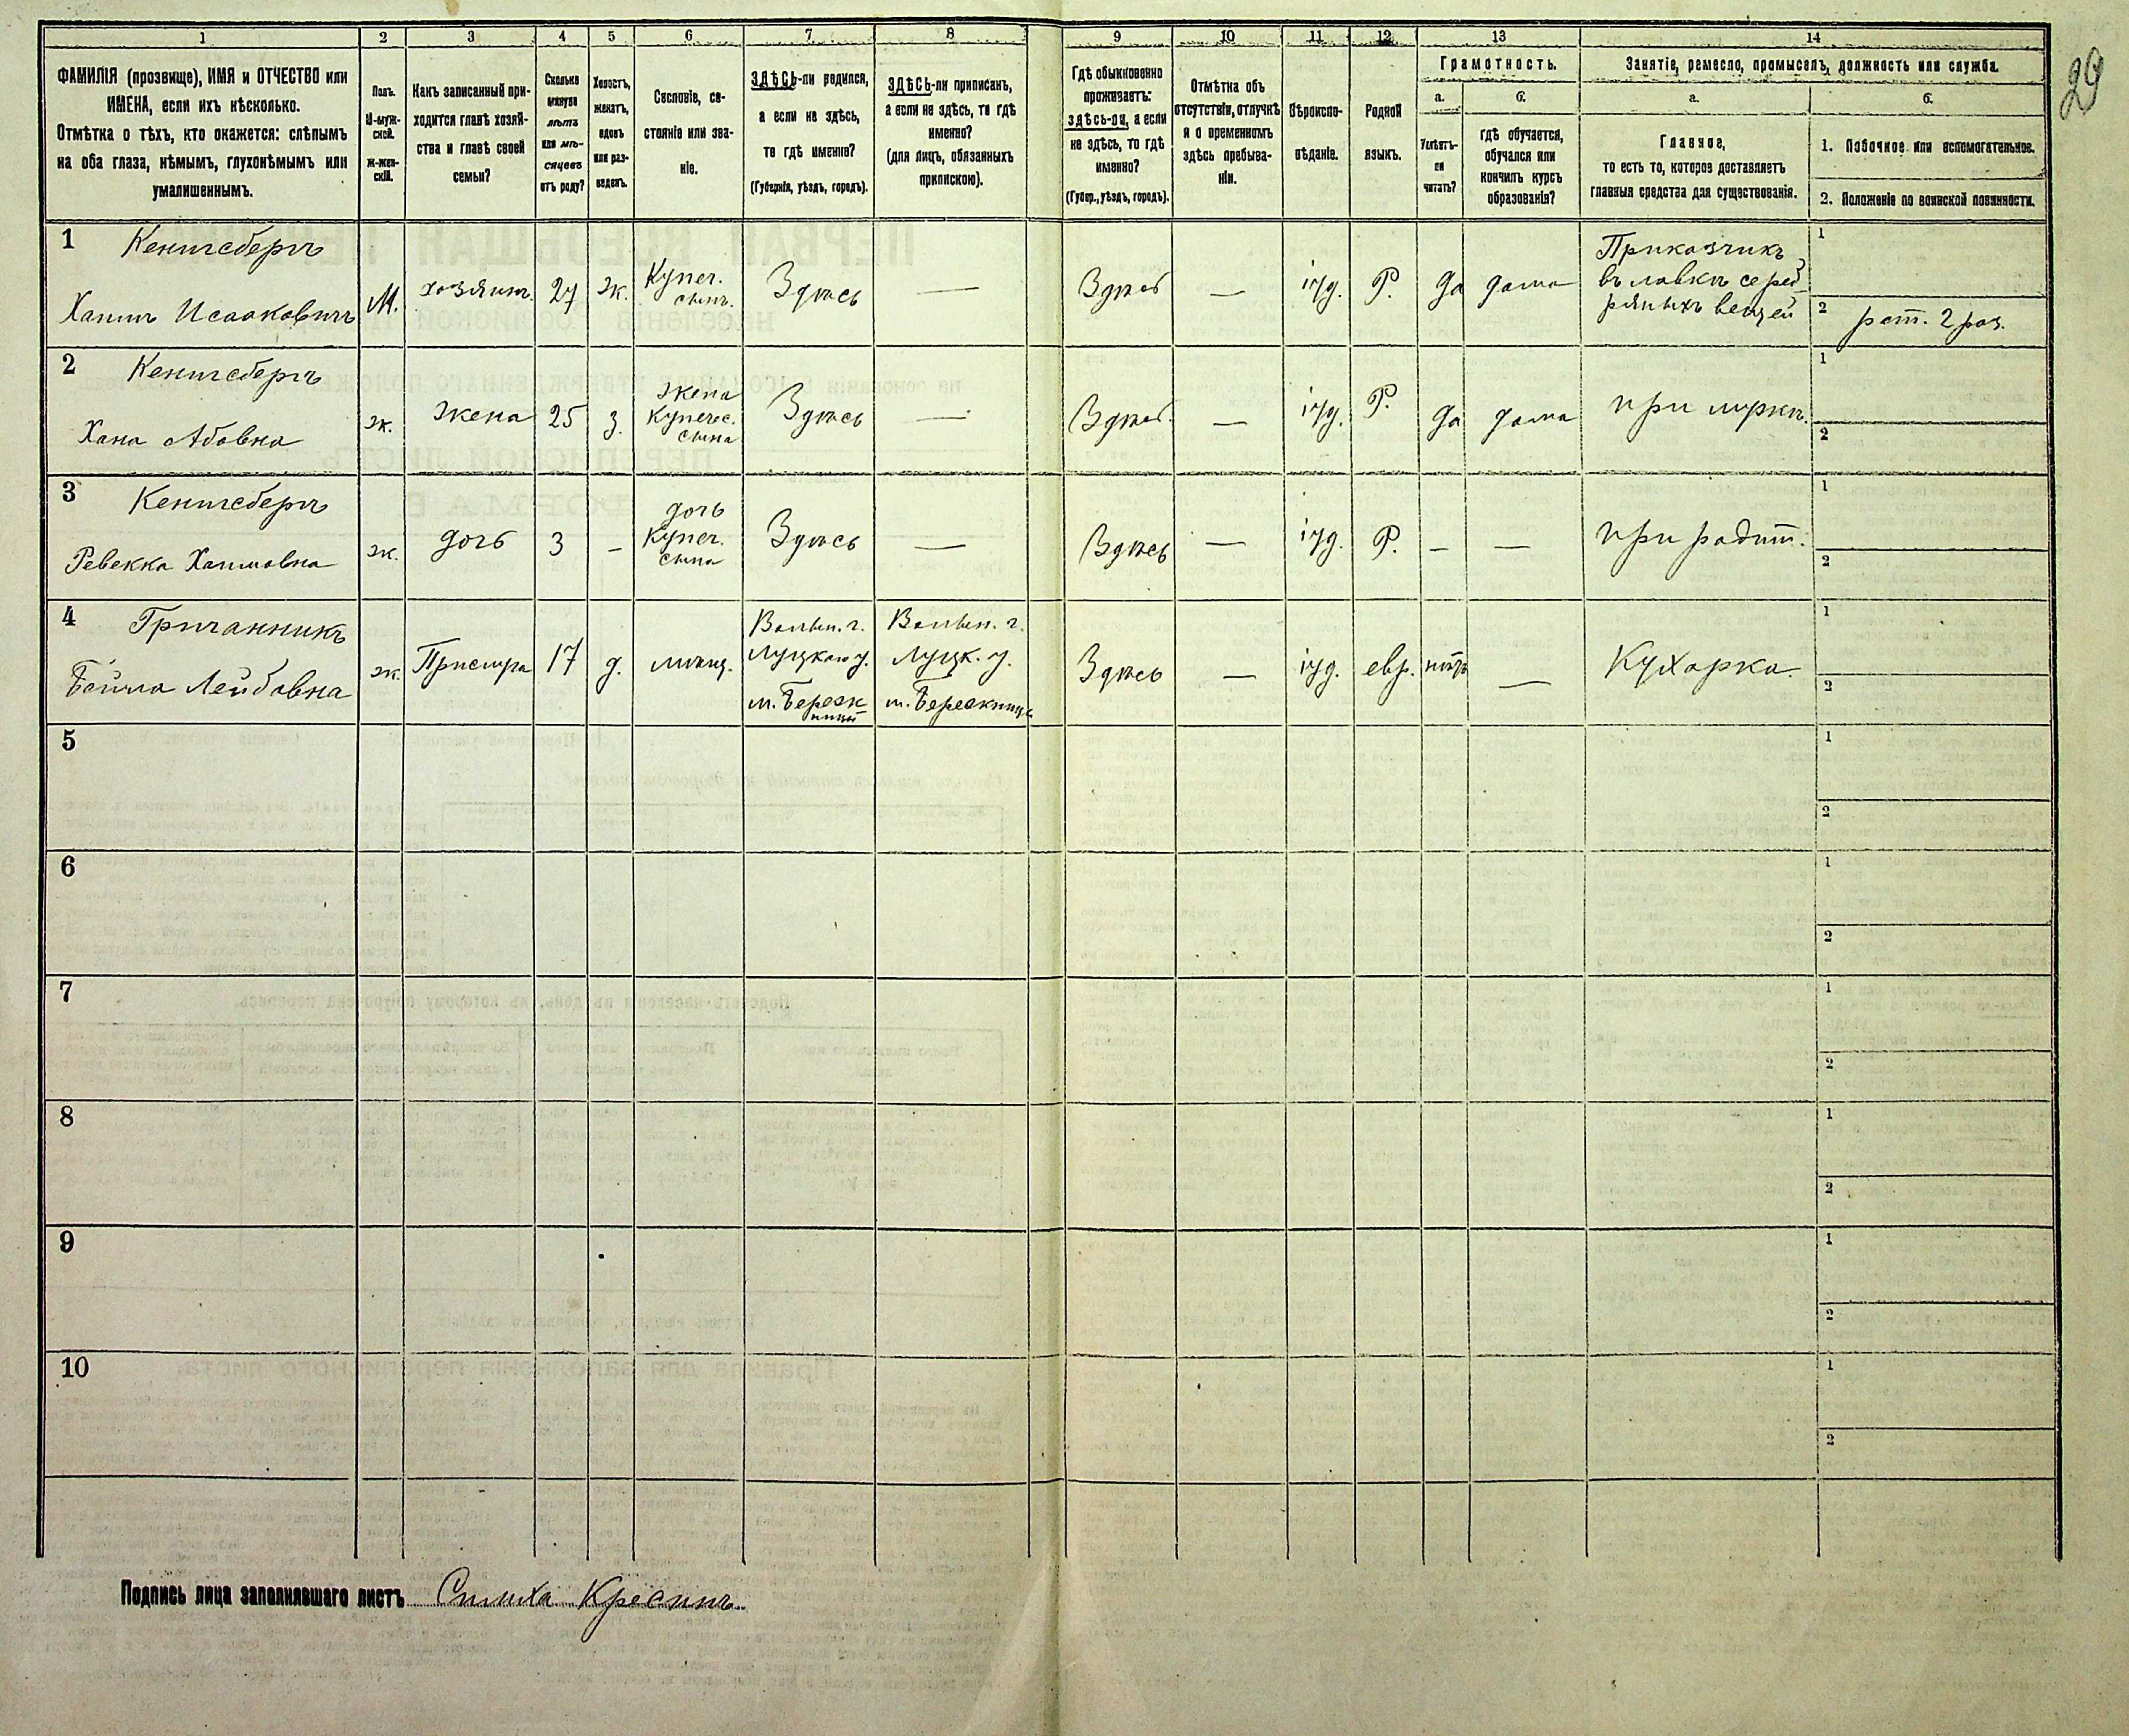 29
1 2 3 4 5 6 7 8 9 10 11 12 13 14
ФАМИЛІЯ (прозвище), ИМЯ и ОТЧЕСТВО или
ИМЕНА, если ихъ нѣсколько.
Отмѣтка о тѣхъ, кто окажется: слѣпымъ
на оба глаза, нѣмымъ, глухонѣмымъ или
умалишеннымъ.
Полъ.
М-муж-
ской.
Ж-жен-
скій.
Какъ записанный при-
ходится главѣ хозяй-
ства и главѣ своей
семьи?
Сколько
минуло
лѣтъ
или мѣ-
сяцевъ
отъ роду?
Холостъ,
женатъ,
вдовъ
или раз-
веденъ.
Сословіе, со-
стояніе или зва-
ніе.
ЗДѢСЬ-ли родился,
а если не здѣсь,
то гдѣ именно?
(Губернія, уѣздъ, городъ).
ЗДѢСЬ-ли приписанъ,
а если не здѣсь, то гдѣ
именно?
(для лицъ, обязанныхъ
припискою).
Гдѣ обыкновенно
проживаетъ:
здѣсь-ли, а если
не здѣсь, то гдѣ
именно?
(Губер., уѣздъ, городъ).
Отмѣтка объ
отсутствіи, отлучкѣ
и о временномъ
здѣсь пребыва-
ніи.
Вѣроиспо-
вѣданіе.
Родной
языкъ.
Грамотность.
а.
Умѣетъ-
ли
читать?
б.
гдѣ обучается,
обучался или
кончилъ курсъ
образованія?
Занятіе, ремесло, промыселъ, должность или служба.
а.
Главное,
то есть то, которое доставляетъ
главныя средства для существованія.
б.
1. Побочное или вспомогательное.
2. Положеніе по воинской повинности.
1 Кенигсбергъ
Хаимъ Исааковичъ
М.
хозяинъ.
27
ж.
Купеч.
сынъ.
Здѣсь
—
Здѣсь
—
іуд.
Р.
да
дома
Приказчикъ
въ лавкѣ сереб
ряныхъ вещей
1
2 рат. 2 раз.
2 Кенигсбергъ
Хана Абовна
ж.
жена
25
з.
жена
Купеч.
сына
Здѣсь
—
Здѣсь.
—
іуд.
Р.
да
дома
при мужѣ.
1
2
3 Кенигсбергъ
Ревекка Хаимовна
ж.
дочь
3
—
дочь
Купеч.
сына
Здѣсь
—
Здѣсь
—
іуд.
Р.
—
—
при родит.
1
2
4 Гричанникъ
Бейла Лейбовна
ж.
Прислуга
17
д.
мѣщ.
Волын. г.
Луцкаго у.
м. Бережн
ицы
Волын. г.
Луцк. у.
м. Бережница
Здѣсь
—
іуд.
евр.
нѣтъ
—
Кухарка.
1
2
5
1
2
6
1
2
7
1
2
8
1
2
9
1
2
10
1
2
Подпись лица заполнявшаго листъ Симха Кресинъ